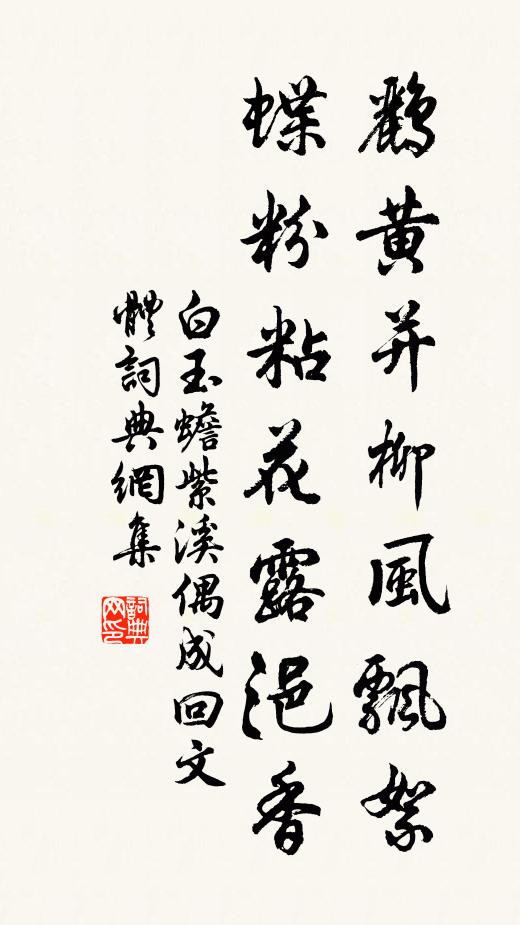 鸝黄并柳風飄絮
蝶粉粘花露浥香
白玉蟾紫溪偶成回文
體詞典網集
詞典網印